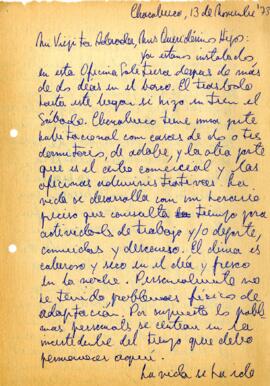 Chacabuco, 13 de Noviembre '73
Mi Viejita Adorada, Mis Queridísimos Hijos:
Ya estamos instalados
en esta Oficina Salitrera después de más
de dos días en el barco. El trasbordo
hasta este lugar se hizo en tren el
Sábado. Chacabuco tiene una parte
habitacional con casas de dos o tres
dormitorios, de adobe, y la otra parte
que es el centro comercial y las
oficinas administrativas. La
vida se desarrolla con un horario
preciso que consulta tiempo para
actividades de trabajo y/o deporte,
comidas y descanso. El clima es
caluroso y seco en el día y fresco
en la noche. Personalmente no
he tenido problemas físicos de
adaptación. Por supuesto los problemas
personales se centran en la
incertidumbre del tiempo que debo
permanecer aquí.
La vida se ha